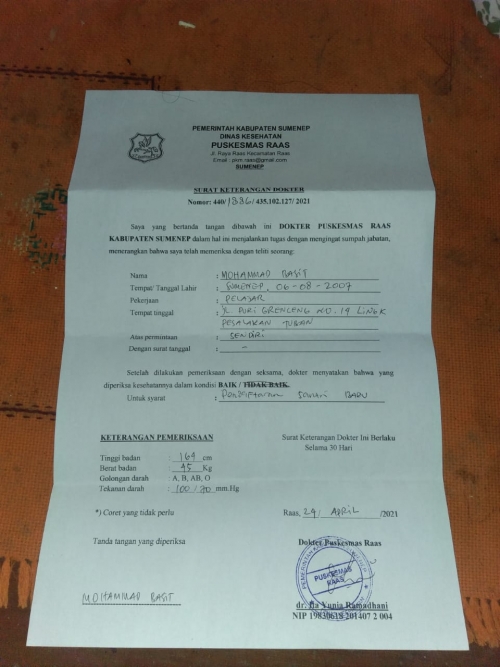 PEMERINTAH KABUPATEN SUMENEP
DINAS KESEHATAN
PUSKESMAS RAAS
Jl. Raya Raas Kecamatan Raas
Email : pkm.raas@gmail.com
SUMENEP
SURAT KETERANGAN DOKTER
Nomor: 440/1886/435.102.127/ 2021
Saya yang bertanda tangan dibawah ini DOKTER PUSKESMAS RAAS
KABUPATEN SUMENEP dalam hal ini menjalankan tugas dengan mengingat sumpah jabatan,
menerangkan bahwa saya telah memeriksa dengan teliti seorang:
Nama : MOHAMMAD BASIT
Tempat/ Tanggal Lahir : SUMENEP, 06-08-2007
Pekerjaan : PELAJAR
Tempat tinggal : JL. DURI GRENCENG NO. 19
Atas permintaan : SENDIRI
Dengan surat tanggal : -
Setelah dilakukan pemeriksaan dengan seksama, dokter menyatakan bahwa yang
diperiksa kesehatannya dalam kondisi BAIK / TIDAK BAIK.
Untuk syarat : BARU
KETERANGAN PEMERIKSAAN
Surat Keterangan Dokter Ini Berlaku
Selama 30 Hari
Tinggi badan : 164 cm
Berat badan : 45 Kg
Golongan darah : A, B, AB, O
Tekanan darah : 100/70 mm.Hg
*) Coret yang tidak perlu
Raas, 29/ APRIL /2021
Tanda tangan yang diperiksa
Dokter Puskesmas Raas
PUSKESMAS
RAAS
MOHAMMAD BASIT
dr. Ila Yunia Ramadhani
NIP 19830618 201407 2 004